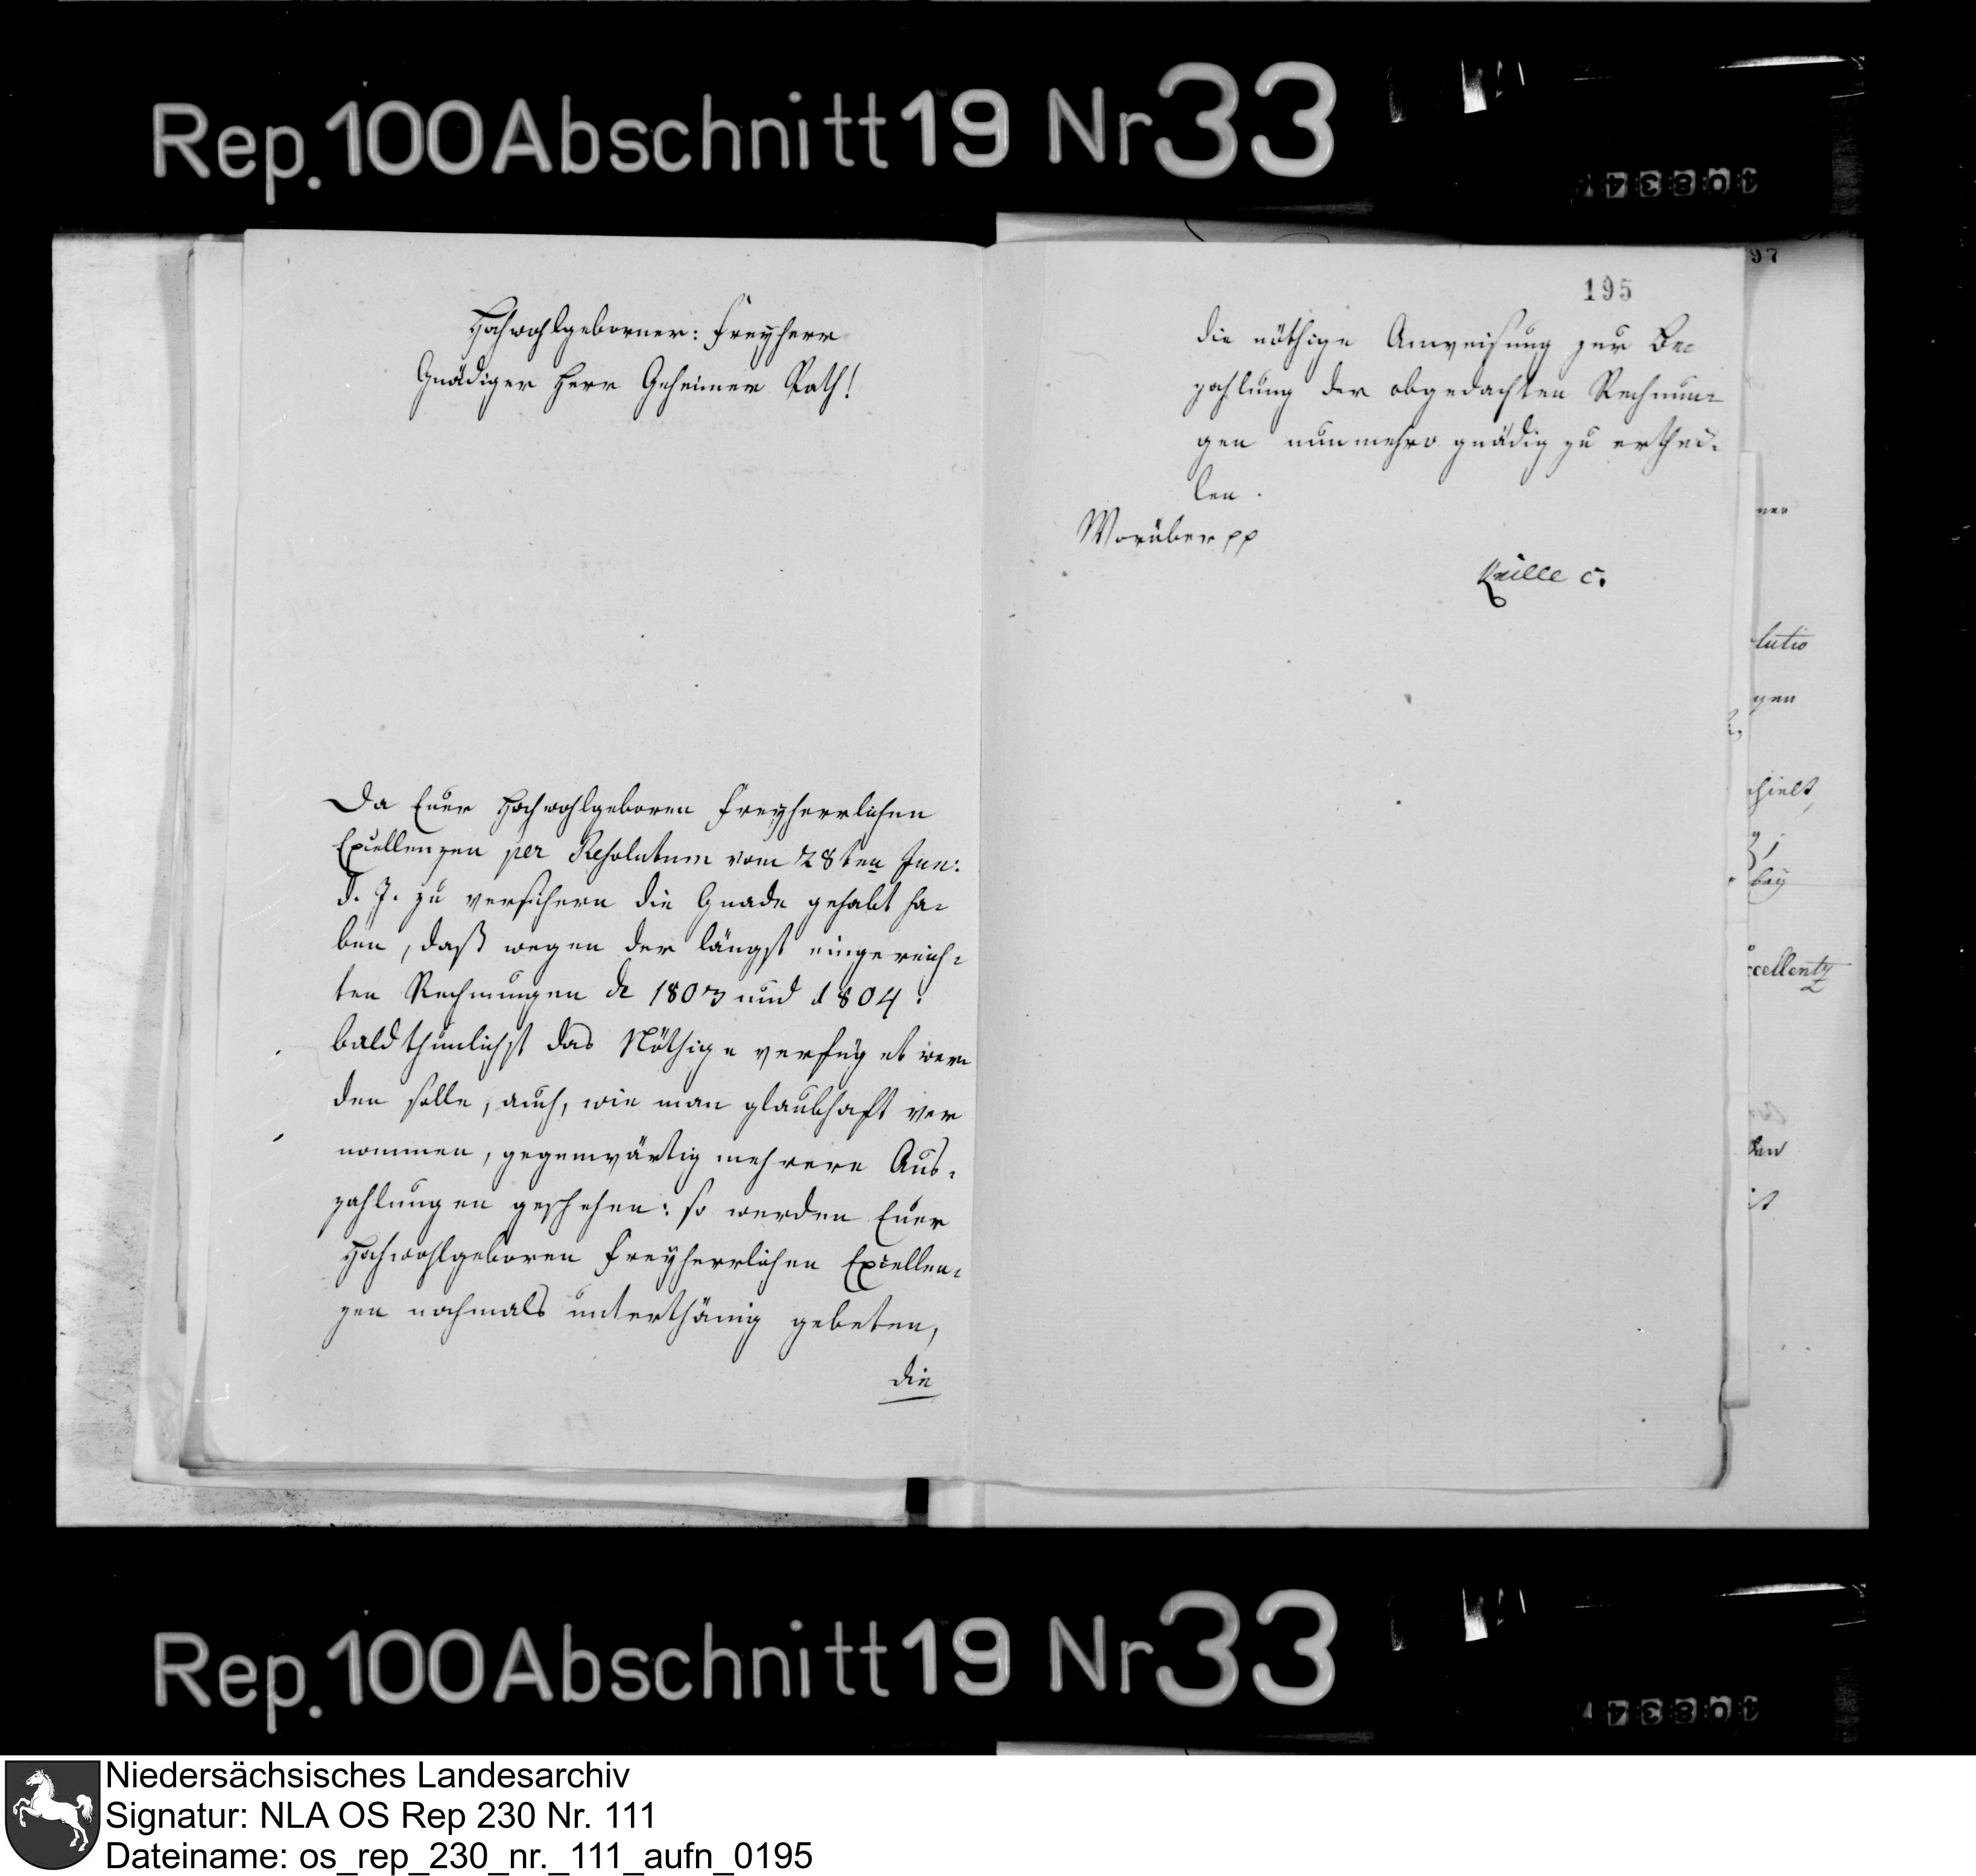 Rep. 100 Abschnitt 19 Nr 33
Hochwohlgeborner: Freyherr
Gnädiger Herr Geheimer Rath!
Da Euer Hochwohlgeboren Freyherrlichen
Excellenzen per Resolutum vom 28ten Jun:
d. J. zu versichern die Gnade gehabt ha-
ben, daß wegen der längst eingereich-
ten Rechnungen de 1803 und 1804:
baldthunlichst das Nöthige verfüget wer
den solle, auch, wie man glaubhaft ver
nommen, gegenwärtig mehrere Aus-
zahlungen geschehen: so werden Euer
Hochwohlgeboren Freyherrlichen Excellen-
zen nochmals unterthänig gebeten,
die
195
die nöthige Anweisung zur Be-
zahlung der obgedachten Rechnun-
gen nunmehro gnädig zu erthei-
len.
Worüber pp
97
lutio
gen
bey
Rep. 100 Abschnitt 19 Nr 33
Niedersächsisches Landesarchiv
Signatur: NLA OS Rep 230 Nr. 111
Dateiname: os_rep_230_nr._111_aufn_0195